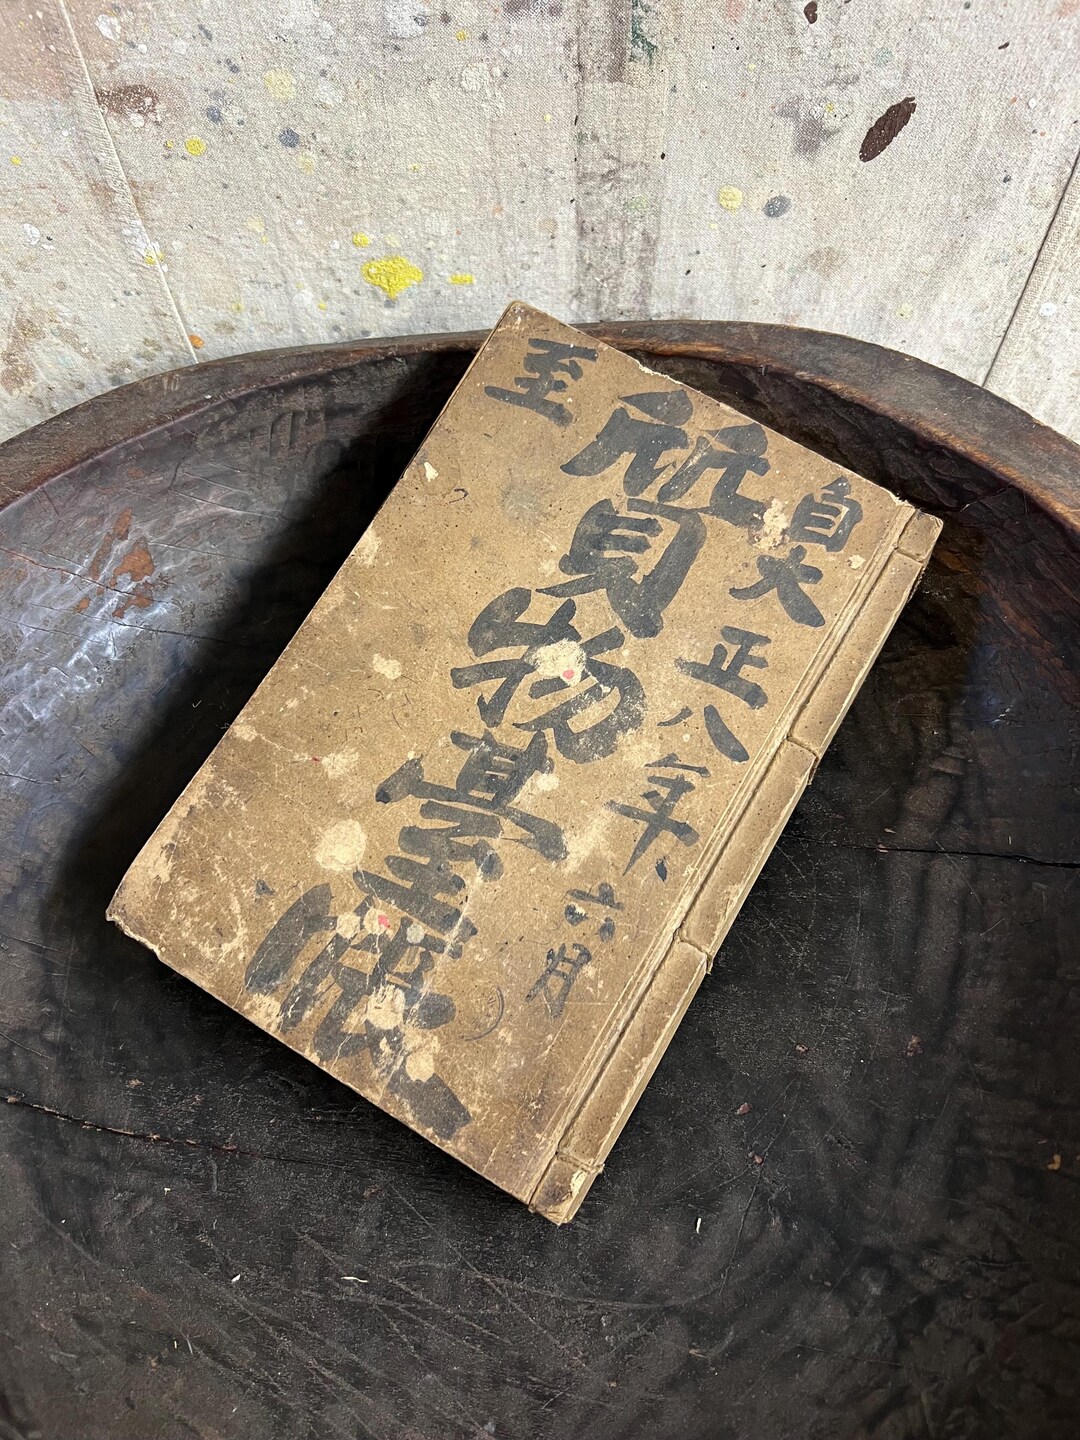 自大正八年六月
質物臺帳
至